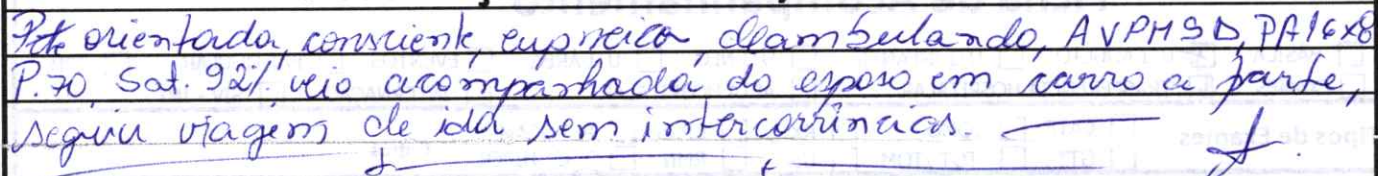 Pcte orientada, consciente, eupneica, deambulando, AVPMSD, PA 16x8
P. 70, Sat. 92%, veio acompanhada do esposo em carro a parte,
seguiu viagem de ida sem intercorrências.